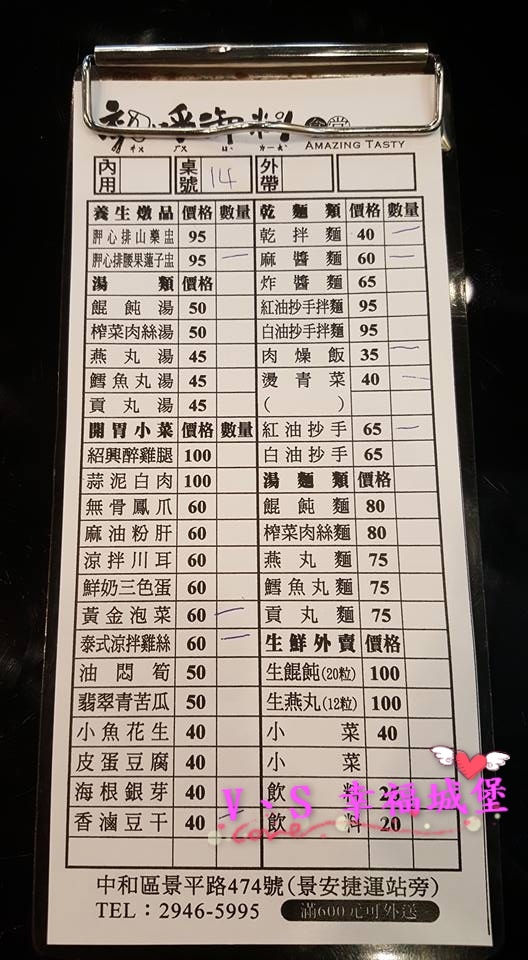 AMAZING TASTY
內用 桌號 14 外帶
養生燉品 價格 數量 乾麵類 價格 數量
胛心排山藥盅 95 乾拌麵 40 一
胛心排腰果蓮子盅 95 一 麻醬麵 60 一
湯類 價格 炸醬麵 65
餛飩湯 50 紅油抄手拌麵 95
榨菜肉絲湯 50 白油抄手拌麵 95
燕丸湯 45 肉燥飯 35 一
鱈魚丸湯 45 燙青菜 40 一
貢丸湯 45 ( )
開胃小菜 價格 數量 紅油抄手 65 一
紹興醉雞腿 100 白油抄手 65
蒜泥白肉 100 湯麵類 價格
無骨鳳爪 60 餛飩麵 80
麻油粉肝 60 榨菜肉絲麵 80
涼拌川耳 60 燕丸麵 75
鮮奶三色蛋 60 鱈魚丸麵 75
黃金泡菜 60 一 貢丸麵 75
泰式涼拌雞絲 60 一 生鮮外賣 價格
油悶筍 50 生餛飩(20粒) 100
翡翠青苦瓜 50 生燕丸(12粒) 100
小魚花生 40 小菜 40
皮蛋豆腐 40 小菜
海根銀芽 40 飲料 25
香滷豆干 40 一 飲料 20
V、S 幸福城堡
Love
中和區景平路474號(景安捷運站旁)
TEL：2946-5995 滿600元可外送